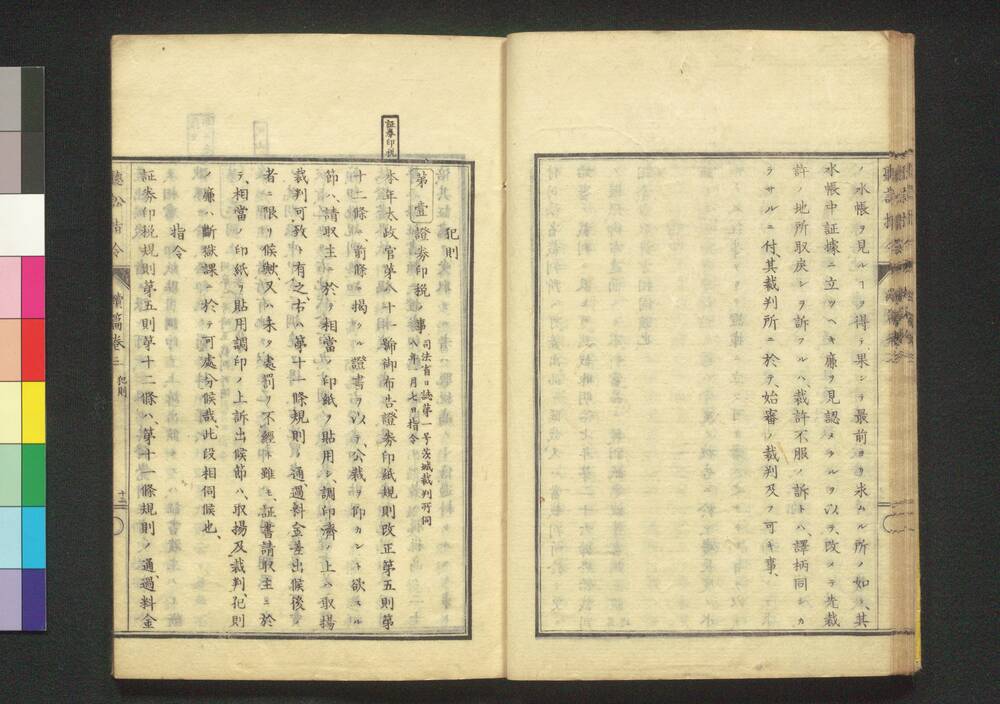 ノ水帳ヲ見ルヿヲ得テ果シテ最前ヨリ求ムル所ノ如ク、其
水帳中証據ニ立ツヘキ廉ヲ見認メタルヲ以テ、改メテ先裁
許ノ地所取戻シヲ訴フルハ、裁許不服ノ訴トハ、譯柄同シカ
ラサルニ付、其裁判所ニ於テ、始審ノ裁判及フ可キ事、
証券印税
犯則
第壹 證券印税ノ事
司法省日誌第一号茨城裁判所伺
八年一月七日指令
本年太政官第八十一号御布告證券印紙規則改正第五則第
十二條、前條ニ揚クル證書ヲ以テ、公裁ヲ仰カント欲スル
節ハ、請取主ニ於テ相當ノ印紙ヲ貼用シ、調印濟ノ上ハ取揚
裁判可致ト有之、右ハ第十一條規則ノ通、過料金差出候後ノ
者ニ限リ候歟、又ハ未タ處罰ヲ不經ト雖モ、証書請取主ニ於
テ、相當ノ印紙ヲ貼用調印ノ上訴出候節ハ、取揚及裁判、犯則
ノ廉ハ、斷獄課ニ於テ可處分候哉、此段相伺候也、
指令
証券印税規則第五則第十二條ハ、第十一條規則ノ通、過料金
聴訟指令 續篇卷三 犯則 十二